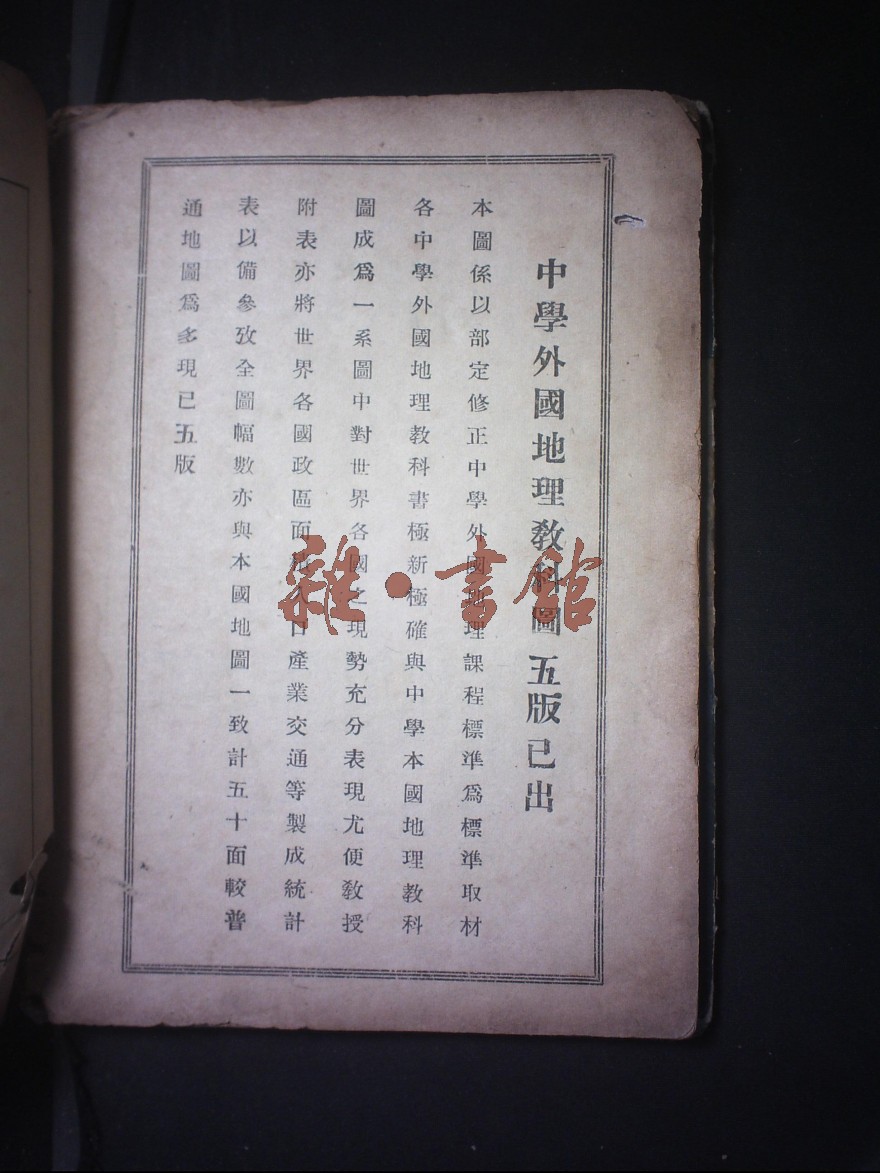 中學外國地理教科圖 五版已出
本圖係以部定修正中學外國地理課程標準爲標準取材
各中學外國地理教科書極新極確與中學本國地理教科
圖成爲一系圖中對世界各國之現勢充分表現尤便敎授
附表亦將世界各國政區面積人口產業交通等製成統計
表以備參攷全圖幅數亦與本國地圖一致計五十面較普
通地圖爲多現已五版
雜·書館